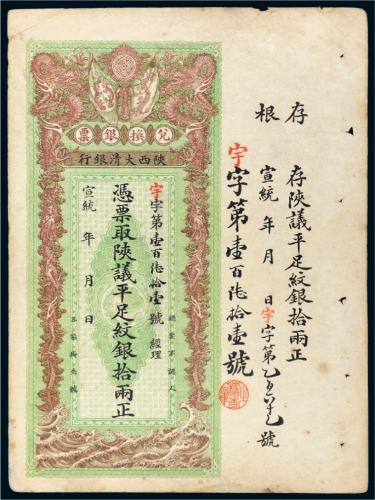 存根
存陝議平足紋銀拾兩正
宣統 年 月 日宇字第
號
宇字第壹百陸拾壹號
票銀換兌
行銀清大西陝
宇字第壹百陸拾壹號 經理
憑票取陝議平足紋銀拾兩正
宣統 年 月 日